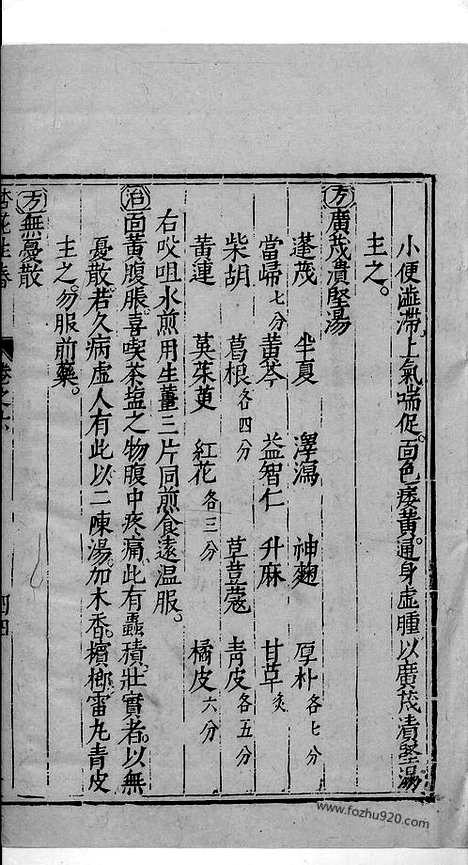 小便澁滯上氣喘促。面色痿黃。通身虛腫以廣茂潰堅湯
主之。
方廣茂潰堅湯
蓬茂 半夏 澤瀉 神麹 厚朴各七分
當歸七分 黃芩 益智仁 升麻 甘草炙
柴胡 葛根各四分 草荳蔻 青皮各五分
黃連 茱萸 紅花各三分 橘皮六分
右㕮咀水煎用生薑三片同煎食遠溫服。
治面黃腹脹。喜喫茶塩之物腹中疼痛。此有蟲積。壯實者。以無
憂散。若久病虛人有此以二陳湯。加木香。檳榔雷丸青皮
主之。勿服前藥。
方無憂散
杏苑生春 卷之六 四四
www.fozhu920.com